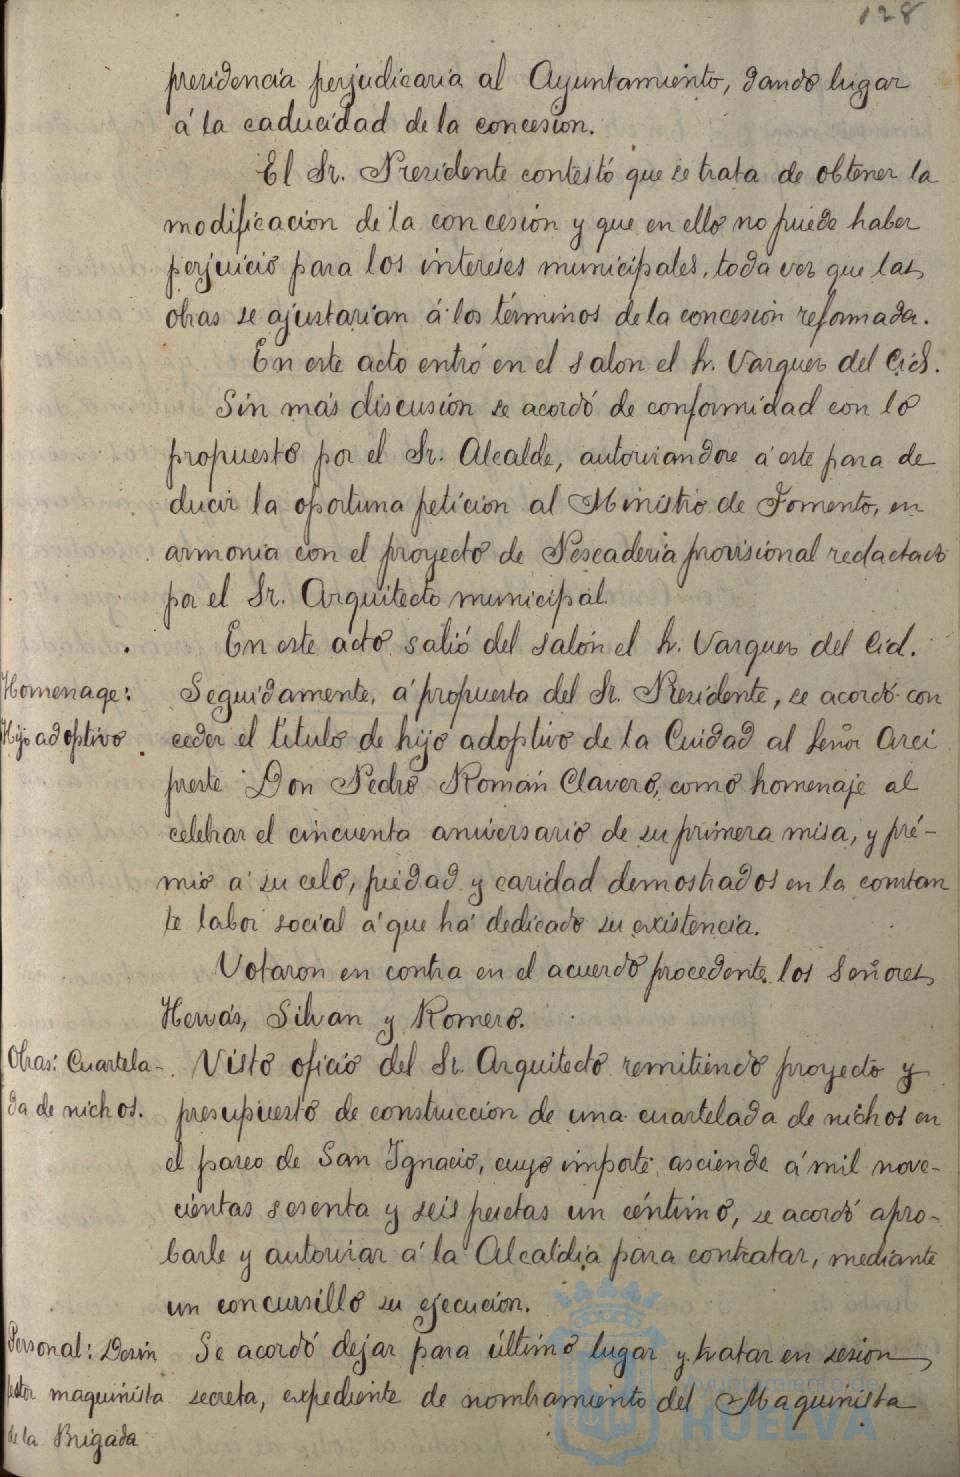 128
presidencia perjudicaria al Ayuntamiento, dando lugar
á la caducidad de la concesion.
El Sr. Presidente contestó que se trata de obtener la
modificacion de la concesión y que en ello no puede haber
perjuicio para los intereses municipales, toda vez que las
obras se ajustarian á los términos de la concesion reformada.
En este acto entró en el salon el Sr. Varquez del Cid.
Sin más discusión se acordó de conformidad con lo
propuesto por el Sr. Alcalde, autorizandose á este para de
ducir la oportuna petición al Ministrio de Fomento, en
armonia con el proyecto de Pescaderia provisional redactado
por el Sr. Arquitecto municipal.
En este acto salió del salón el Sr. Varquez del Cid.
Homenage:
Hijo adoptivo
Seguidamente, á propuesta del Sr. Presidente, se acordó con
ceder el título de hijo adoptivo de la Cuidad al Señor Arci
preste Don Pedro Román Clavero, como homenaje al
celebrar el cincuenta aniversario de su primera misa, y pré-
mio á su celo, piedad y caridad demostrados en la constan
te labor social á que há dedicado su existencia.
Votaron en contra en el acuerdo procedente los Señores
Hervás, Silvan y Romero.
Obras: Cuartela-
da de nichos.
Visto oficio del Sr. Arquitecto remitiendo proyecto y
presupuesto de construccion de una cuartelada de nichos en
el paseo de San Ignacio, cuyo importe asciende á mil nove-
cientas sesenta y seis pesetas un céntimo, se acordó apro-
barle y autorizar á la Alcaldia para contratar, mediante
un concursillo su ejecución.
Personal: Desin
fector maquinista
de la Brigada
Se acordó dejar para último lugar y tratar en sesion
secreta, expediente de nombramiento del Maquinista
Ayuntamiento de
HUELVA